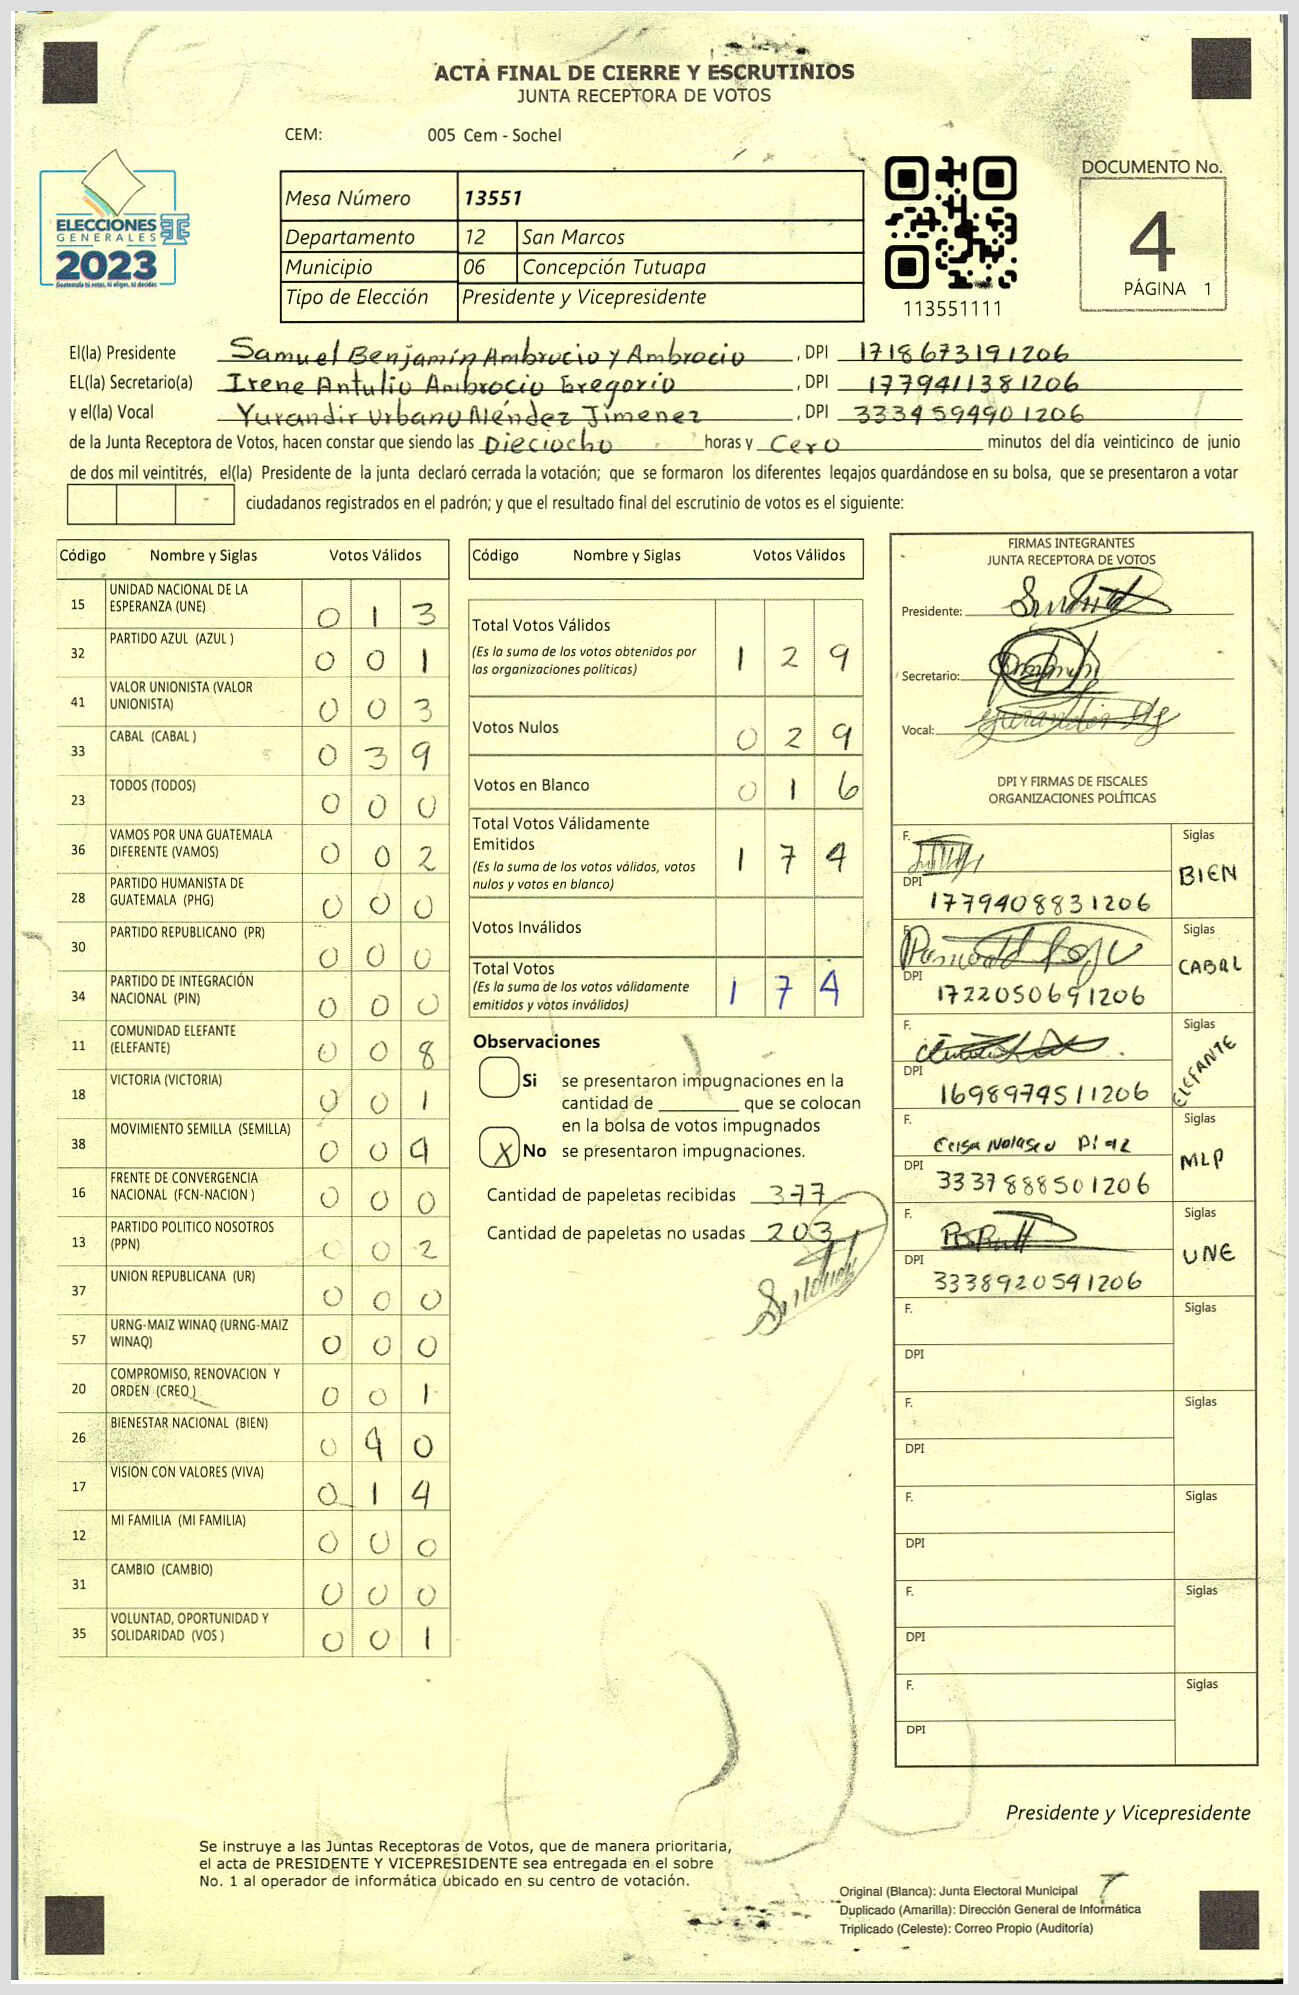 ACTA FINAL DE CIERRE Y ESCRUTINIOS
JUNTA RECEPTORA DE VOTOS
CEM: 005 Cem - Sochel
ELECCIONES
GENERALES
2023
Guatemala tú votas, tú eliges, tú decides
Mesa Número 13551
Departamento 12 San Marcos
Municipio 06 Concepción Tutuapa
Tipo de Elección Presidente y Vicepresidente
113551111
DOCUMENTO No.
4
PÁGINA 1
El(la) Presidente Samuel Benjamín Ambrocio y Ambrocio, DPI 1718673191206
EL(la) Secretario(a) Irene Antulio Ambrocio Gregorio, DPI 1779411381206
y el(la) Vocal Yurandir Urbano Méndez Jimenez, DPI 3334594901206
de la Junta Receptora de Votos, hacen constar que siendo las Dieciocho horas y Cero minutos del día veinticinco de junio
de dos mil veintitrés, el(la) Presidente de la junta declaró cerrada la votación; que se formaron los diferentes legajos guardándose en su bolsa, que se presentaron a votar
ciudadanos registrados en el padrón; y que el resultado final del escrutinio de votos es el siguiente:
Código Nombre y Siglas Votos Válidos
15 UNIDAD NACIONAL DE LA ESPERANZA (UNE) 0 1 3
32 PARTIDO AZUL (AZUL ) 0 0 1
41 VALOR UNIONISTA (VALOR UNIONISTA) 0 0 3
33 CABAL (CABAL ) 0 3 9
23 TODOS (TODOS) 0 0 0
36 VAMOS POR UNA GUATEMALA DIFERENTE (VAMOS) 0 0 2
28 PARTIDO HUMANISTA DE GUATEMALA (PHG) 0 0 0
30 PARTIDO REPUBLICANO (PR) 0 0 0
34 PARTIDO DE INTEGRACIÓN NACIONAL (PIN) 0 0 0
11 COMUNIDAD ELEFANTE (ELEFANTE) 0 0 8
18 VICTORIA (VICTORIA) 0 0 1
38 MOVIMIENTO SEMILLA (SEMILLA) 0 0 4
16 FRENTE DE CONVERGENCIA NACIONAL (FCN-NACION ) 0 0 0
13 PARTIDO POLITICO NOSOTROS (PPN) 0 0 2
37 UNION REPUBLICANA (UR) 0 0 0
57 URNG-MAIZ WINAQ (URNG-MAIZ WINAQ) 0 0 0
20 COMPROMISO, RENOVACION Y ORDEN (CREO ) 0 0 1
26 BIENESTAR NACIONAL (BIEN) 0 4 0
17 VISION CON VALORES (VIVA) 0 1 4
12 MI FAMILIA (MI FAMILIA) 0 0 0
31 CAMBIO (CAMBIO) 0 0 0
35 VOLUNTAD, OPORTUNIDAD Y SOLIDARIDAD (VOS ) 0 0 1
Código Nombre y Siglas Votos Válidos
Total Votos Válidos 1 2 9
(Es la suma de los votos obtenidos por
las organizaciones políticas)
Votos Nulos 0 2 9
Votos en Blanco 0 1 6
Total Votos Válidamente
Emitidos 1 7 4
(Es la suma de los votos válidos, votos
nulos y votos en blanco)
Votos Inválidos
Total Votos 1 7 4
(Es la suma de los votos válidamente
emitidos y votos inválidos)
Observaciones
Si se presentaron impugnaciones en la
cantidad de ________ que se colocan
en la bolsa de votos impugnados
X No se presentaron impugnaciones.
Cantidad de papeletas recibidas 377
Cantidad de papeletas no usadas 203
FIRMAS INTEGRANTES
JUNTA RECEPTORA DE VOTOS
Presidente:
Secretario:
Vocal:
DPI Y FIRMAS DE FISCALES
ORGANIZACIONES POLÍTICAS
F. Siglas
DPI 1779408831206 BIEN
F. Siglas
DPI 1722050691206 CABAL
F. Siglas
DPI 1698974511206 ELEFANTE
F. Siglas
DPI 3337888501206 MLP
F. Siglas
DPI 3338920541206 UNE
F. Siglas
DPI
F. Siglas
DPI
F. Siglas
DPI
F. Siglas
DPI
F. Siglas
DPI
Presidente y Vicepresidente
Se instruye a las Juntas Receptoras de Votos, que de manera prioritaria,
el acta de PRESIDENTE Y VICEPRESIDENTE sea entregada en el sobre
No. 1 al operador de informática ubicado en su centro de votación.
Original (Blanca): Junta Electoral Municipal
Duplicado (Amarilla): Dirección General de Informática
Triplicado (Celeste): Correo Propio (Auditoría)